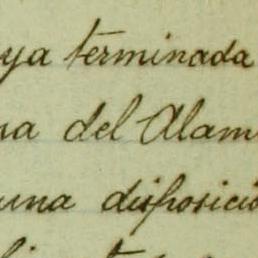 ya terminada
del Alam
una disposició